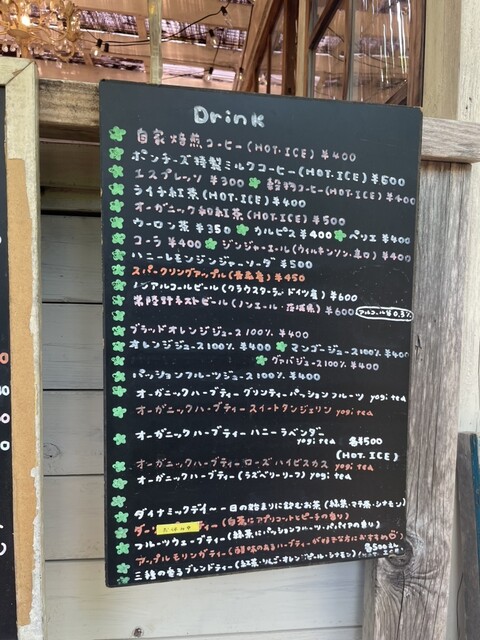 Drink
自家焙煎コーヒー(HOT・ICE) ¥400
ポンチーズ特製ミルクコーヒー(HOT・ICE) ¥600
エスプレッソ ¥300 穀物コーヒー(HOT・ICE) ¥400
ライチ紅茶(HOT・ICE) ¥400
オーガニック和紅茶(HOT・ICE) ¥500
ウーロン茶 ¥350 カルピス ¥400 ペリエ ¥400
コーラ ¥400 ジンジャーエール(ウィルキンソン・辛口) ¥400
ハニーレモンジンジャーソーダ ¥500
スパークリングアップル(青森産) ¥450
ノンアルコールビール(クラウスターラー ドイツ産) ¥600
常陸野ネストビール(ノンエール・茨城県) ¥600 アルコール分0.3%
ブラッドオレンジジュース100% ¥400
オレンジジュース100% ¥400 マンゴージュース100% ¥400
グァバジュース100% ¥400
パッションフルーツジュース100% ¥400
オーガニックハーブティー グリンティーパッションフルーツ yogi tea
オーガニックハーブティースイートタンジェリン yogi tea
オーガニックハーブティー ハニーラベンダー
yogi tea 各¥500
(HOT・ICE)
オーガニックハーブティーローズハイビスカス yogi tea
オーガニックハーブティー(ラズベリーリーフ) yogi tea
ダイナミックデイ〜一日の始まりに飲むお茶(緑茶・マテ茶・シナモン)
ティー(白茶にアプリコットとピーチの香り)
フルーツウェーブティー(緑茶にパッションフルーツ・パパイヤの香り)
アップルモリンガティー(酸味のあるハーブティーが好きな方におすすめ)
各500
三種の香るブレンドティー(紅茶・りんご・オレンジピール・シナモン)(HOT・ICE)